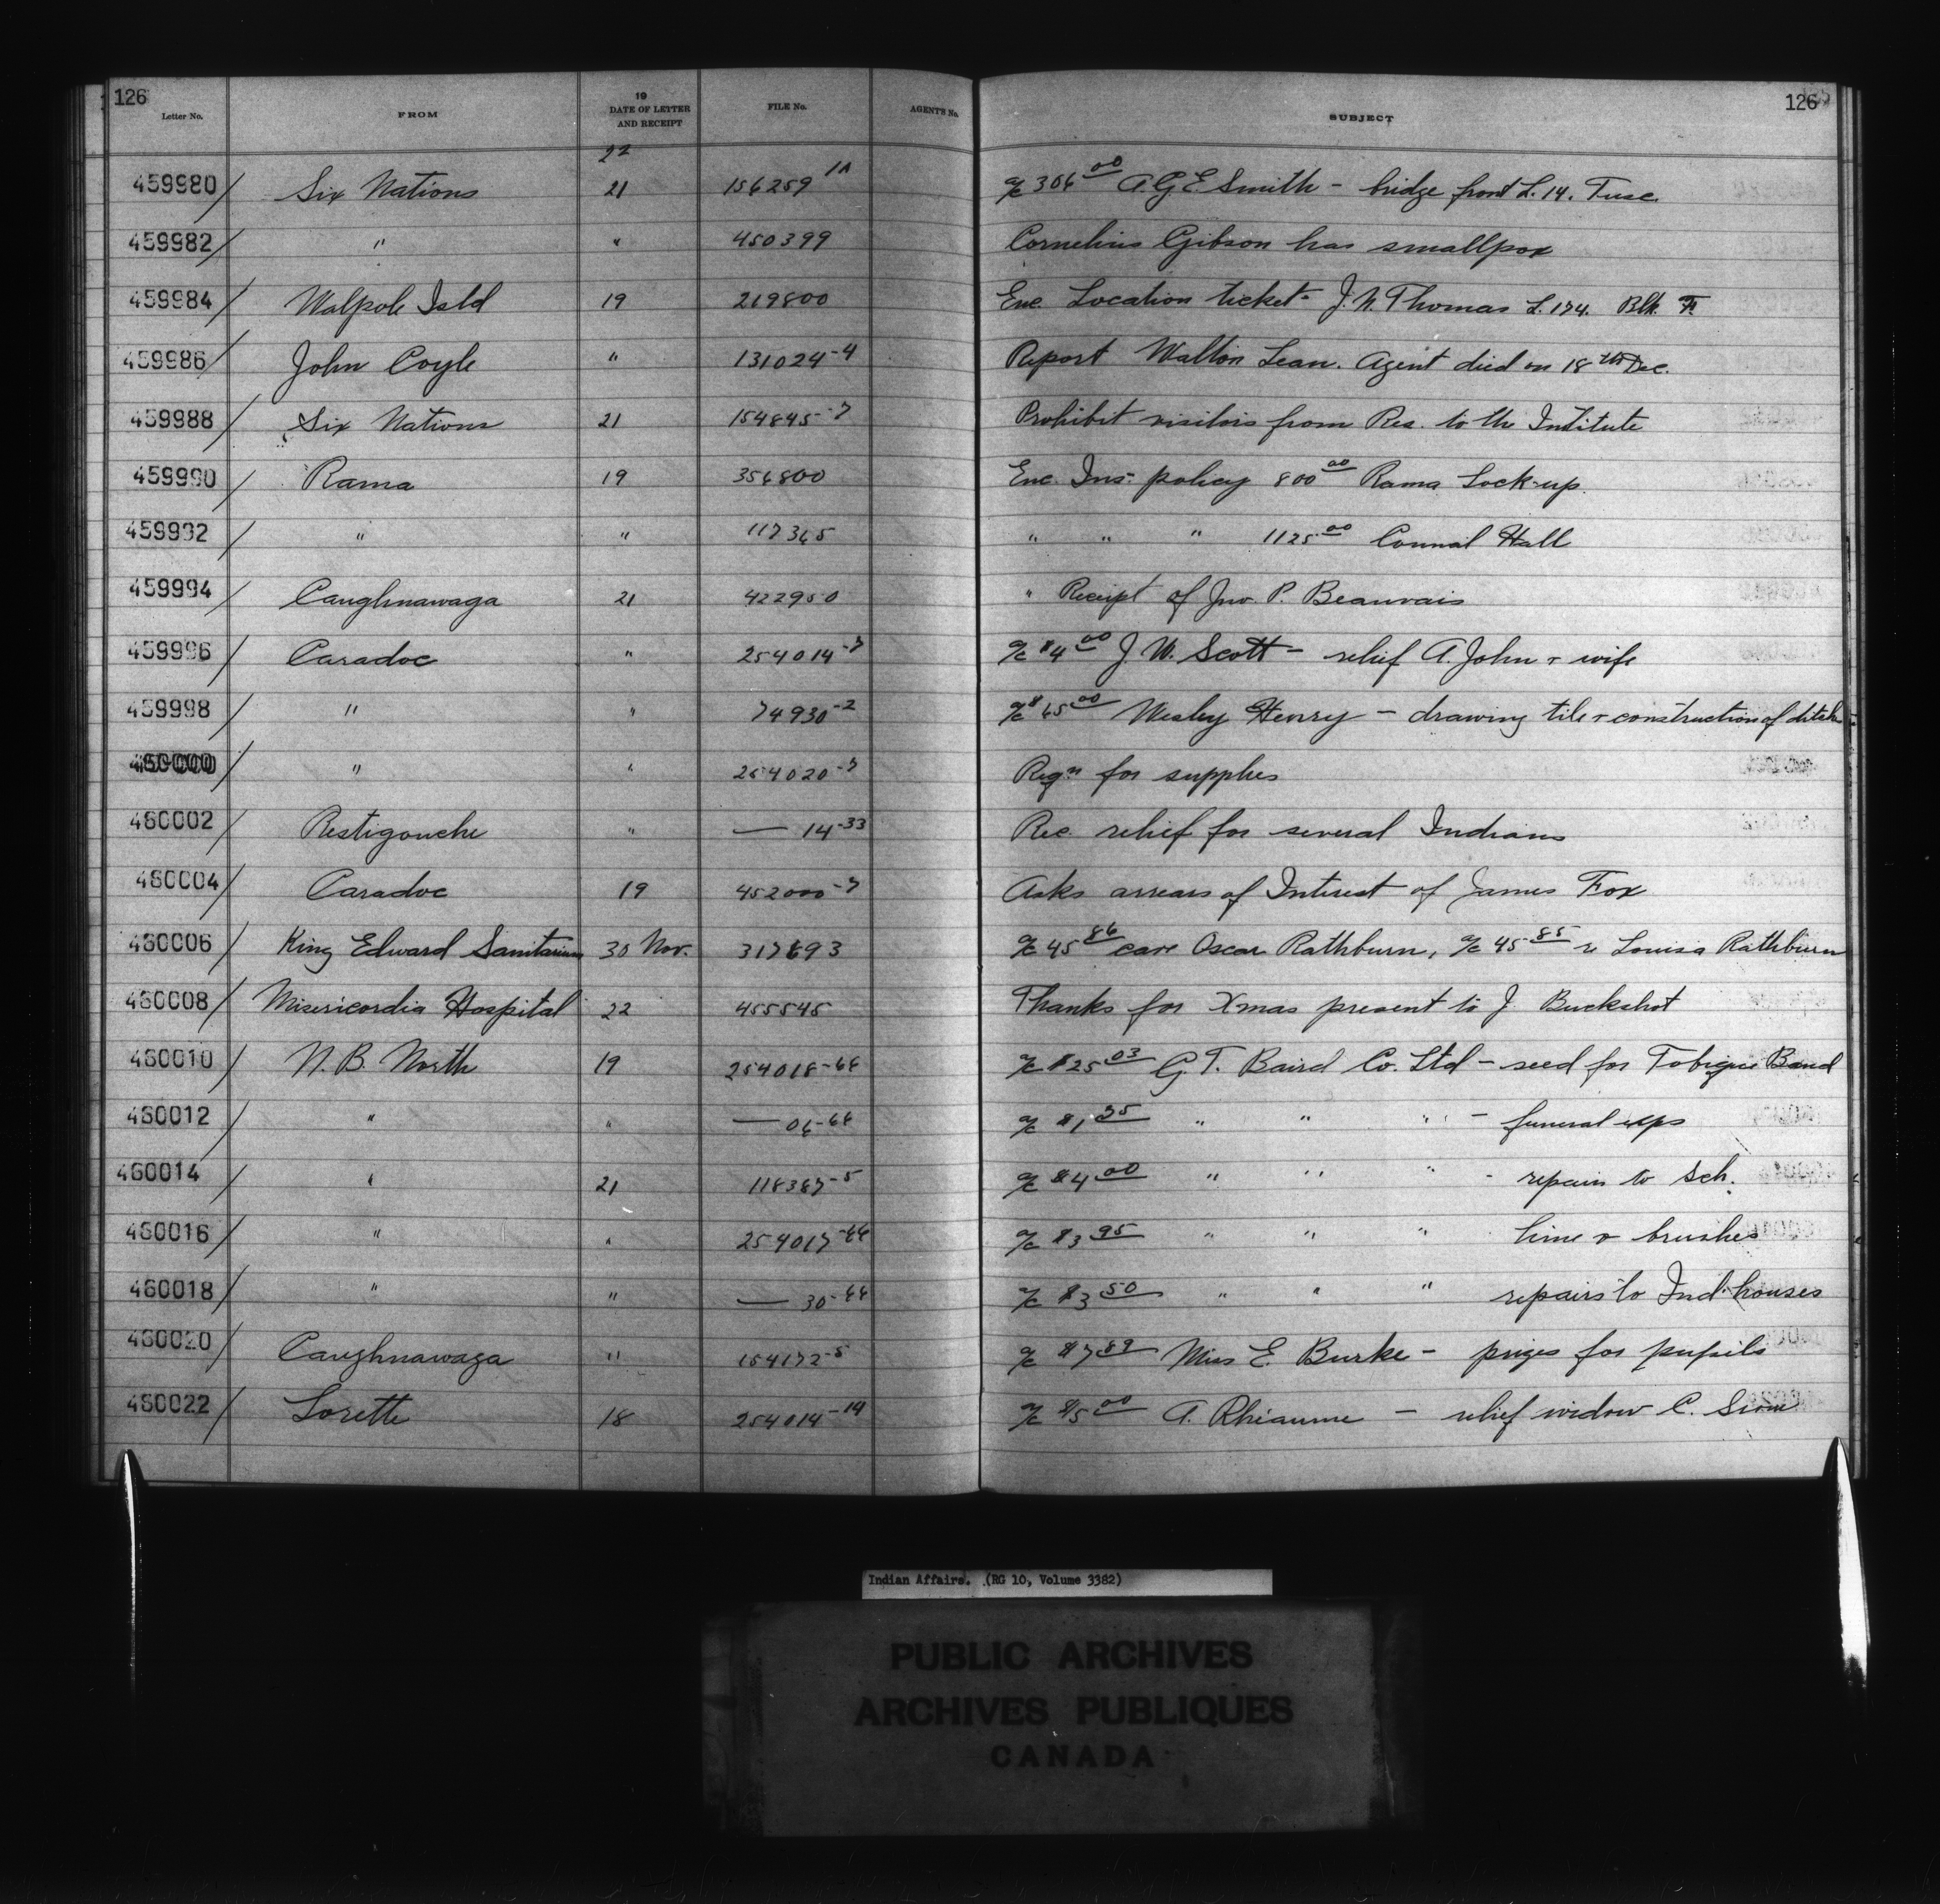 126 126
Letter No. FROM 19 DATE OF LETTER AND RECEIPT FILE No. AGENT'S No. SUBJECT
22
459980 / Six Nations 21 156259 1A a/c 306 00 A.G.E Smith - bridge front L. 14. Tusc.
459982 / " " 450399 Cornelius Gibson has smallpox
459984 / Walpole Isld 19 219800 Enc. Location ticket - J.N. Thomas L. 174. Blk. F.
459986 / John Coyle " 131024-4 Report Walton Lean. Agent died on 18th Dec.
459988 / Six Nations 21 154845-7 Prohibit visitors from Res. to the Institute
459990 / Rama 19 356800 Enc. Ins: policy 800 00 Rama Lock-up.
459992 / " " 117365 " " " 1125 00 Council Hall
459994 / Caughnawaga 21 422950 " Receipt of Jno. P. Beauvais
459996 / Caradoc " 254014-7 a/c $4 00 J. W. Scott - relief A. John + wife
459998 / " " 74930-2 a/c $65 00 Wesley Henry - drawing tile + construction of ditch
460000 / " " 254020-7 Reqn for supplies
460002 / Restigouche " — 14-33 Rec. relief for several Indians
460004 / Caradoc 19 452000-7 Asks arrears of Interest of James Fox
460006 / King Edward Sanitarium 30 Nov. 317693 a/c 45 86 care Oscar Rathburn, a/c 45 85 re Louisa Rathburn
460008 / Misericordia Hospital 22 455545 Thanks for Xmas present to J. Buckshot
460010 / N. B. North 19 254018-66 a/c $25 03 G. T. Baird Co. Ltd - seed for Tobique Band
460012 / " " — 06-66 a/c $1 35 " " " - funeral exps
460014 / " 21 118387-5 a/c $4 00 " " " - repairs to Sch.
460016 / " " 254017-66 a/c $3 95 " " " lime + brushes
460018 / " " — 30-66 a/c $3 50 " " " repairs to Ind. houses
460020 / Caughnawaga " 154172-5 a/c $7 89 Miss E. Burke - prizes for pupils
460022 / Lorette 18 254014-14 a/c $5 00 A. Rhéaume - relief widow C. Sioui
Indian Affairs. (RG 10, Volume 3382)
PUBLIC ARCHIVES
ARCHIVES PUBLIQUES
CANADA